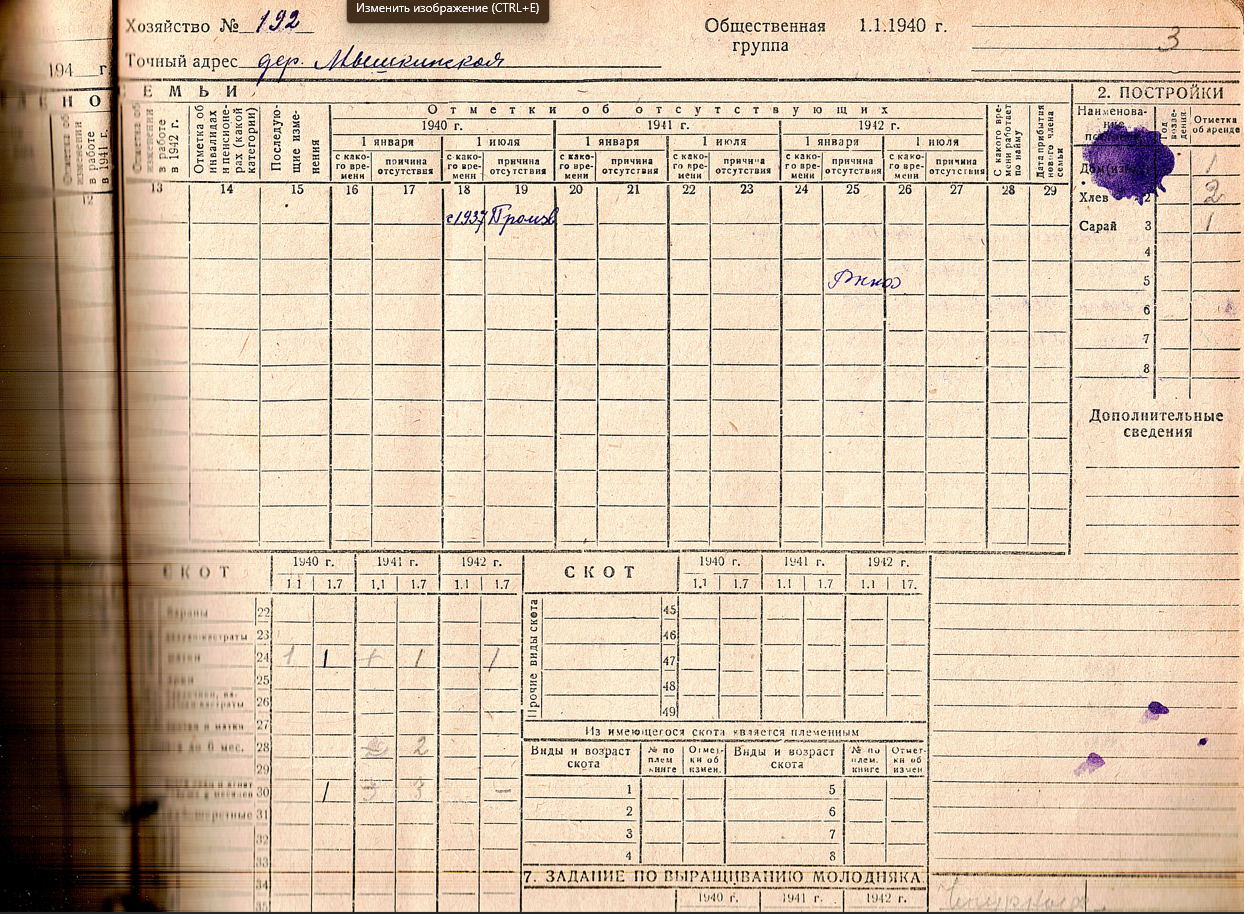 Изменить изображение (CTRL+E)
Хозяйство № 192
Общественная группа 1.1.1940 г. 3
194 г.
Точный адрес дер. Мышкинской
СЕМЬИ
2. ПОСТРОЙКИ
Отметки об отсутствующих
1940 г. 1941 г. 1942 г.
1 января 1 июля 1 января 1 июля 1 января 1 июля
Отметка об изменении в работе в 1941 г.
Отметка об изменении в работе в 1942 г.
Отметка об инвалидах и пенсионерах (какой категории)
Последующие изменения
с какого времени причина отсутствия с какого времени причина отсутствия с какого времени причина отсутствия с какого времени причина отсутствия с какого времени причина отсутствия с какого времени причина отсутствия
С какого времени работает по найму
Дата прибытия нового члена семьи
Отметка об аренде
12 13 14 15 16 17 18 19 20 21 22 23 24 25 26 27 28 29
1
Хлев 2 2
с 1937
Сарай 3 1
4
5
6
7
8
Дополнительные сведения
СКОТ 1940 г. 1941 г. 1942 г.
1.1 1.7 1.1 1.7 1.1 1.7
Бараны 22
23
матки 24 1 1 1 1 1
25
26
27
до 6 мес. 28 2 2
29
30 1 3 3 —
31
32
33
34
35
СКОТ 1940 г. 1941 г. 1942 г.
1.1 1.7 1.1 1.7 1.1 17.
Прочие виды скота
45
46
47
48
49
Из имеющегося скота является племенным
Виды и возраст скота № по плем. книге Отметки об измен. Виды и возраст скота № по плем. книге Отметки об измен.
1 5
2 6
3 7
4 8
7. ЗАДАНИЕ ПО ВЫРАЩИВАНИЮ МОЛОДНЯКА
1940 г. 1941 г. 1942 г.